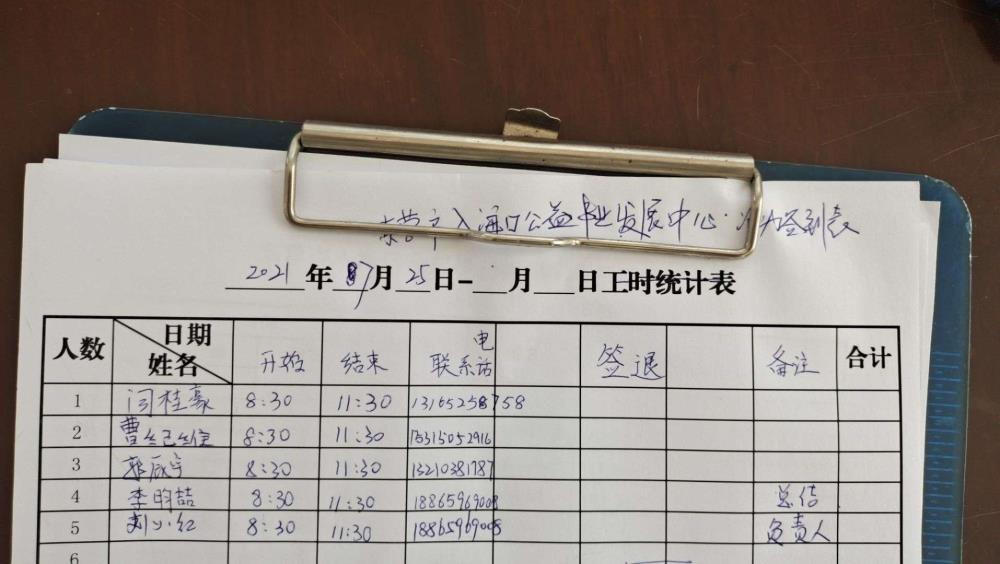 东营市入海口公益事业发展中心·活动签到表
2021年7月25日-__月__日工时统计表
人数 日期 姓名 开始 结束 联系电话 签退 备注 合计
1 闫桂豪 8:30 11:30 13165258758
2 曹纪维 8:30 11:30 15052916
3 辰宇 8:30 11:30 13210381787
4 李明喆 8:30 11:30 18865969008 总结
5 刘小红 8:30 11:30 18865969008 负责人
6